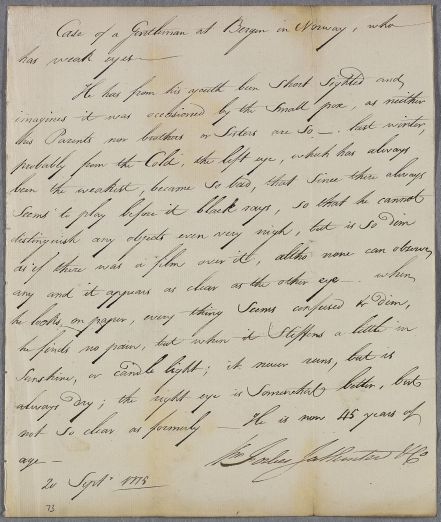 Case of a Gentleman at Bergen in Norway, who
has weak eyes —
He has from his youth been Short Sighted and
imagines it was occasioned by the Small pox, as neither
his Parents nor brothers or Sisters are so —. Last winter,
probably from the Cold, the left eye, which has always
been the weakest, became so bad, that since there always
Seems to play before it black rays, so that he cannot
distinguish any objects even very nigh, but is so dim
as if there was a film over it, altho none can observe
any and it appears as clear as the other eye —. when
he looks on paper, every thing Seems confused & dim,
he finds no pain, but when it Stiffens a little in
Sunshine, or Candle light; it never runs, but is
always dry; the right eye is Somewhat better, but
not so clear as formerly — He is now 45 years of
age —
& Co
20 Septr. 1775
73